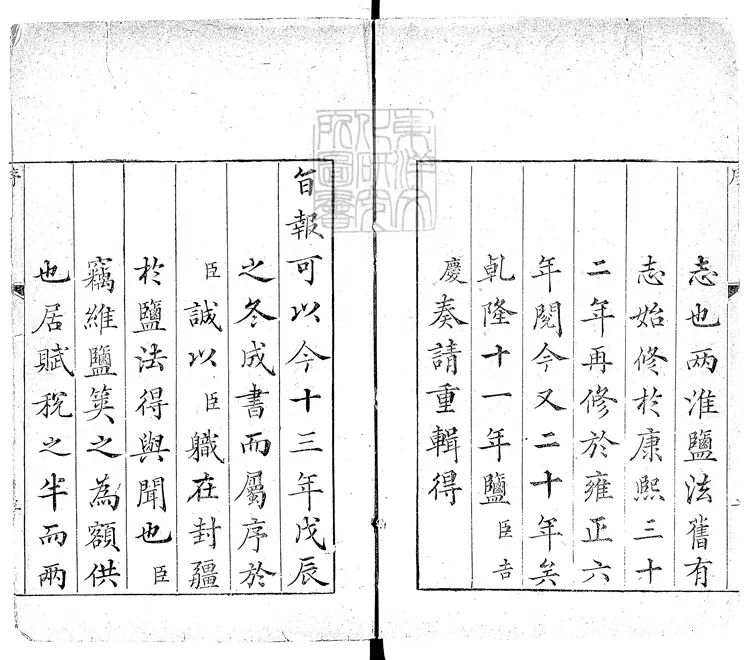 志也兩淮鹽法舊有
志始修於康熙三十
二年再修於雍正六
年閱今又二十年矣
乾隆十一年鹽臣吉
慶奏請重輯得
旨報可以今十三年戊辰
之冬成書而屬序於
臣誠以臣職在封疆
於鹽法得與聞也臣
竊維鹽筴之為額供
也居賦稅之半而兩
東洋文
化研究
所圖書
序
序